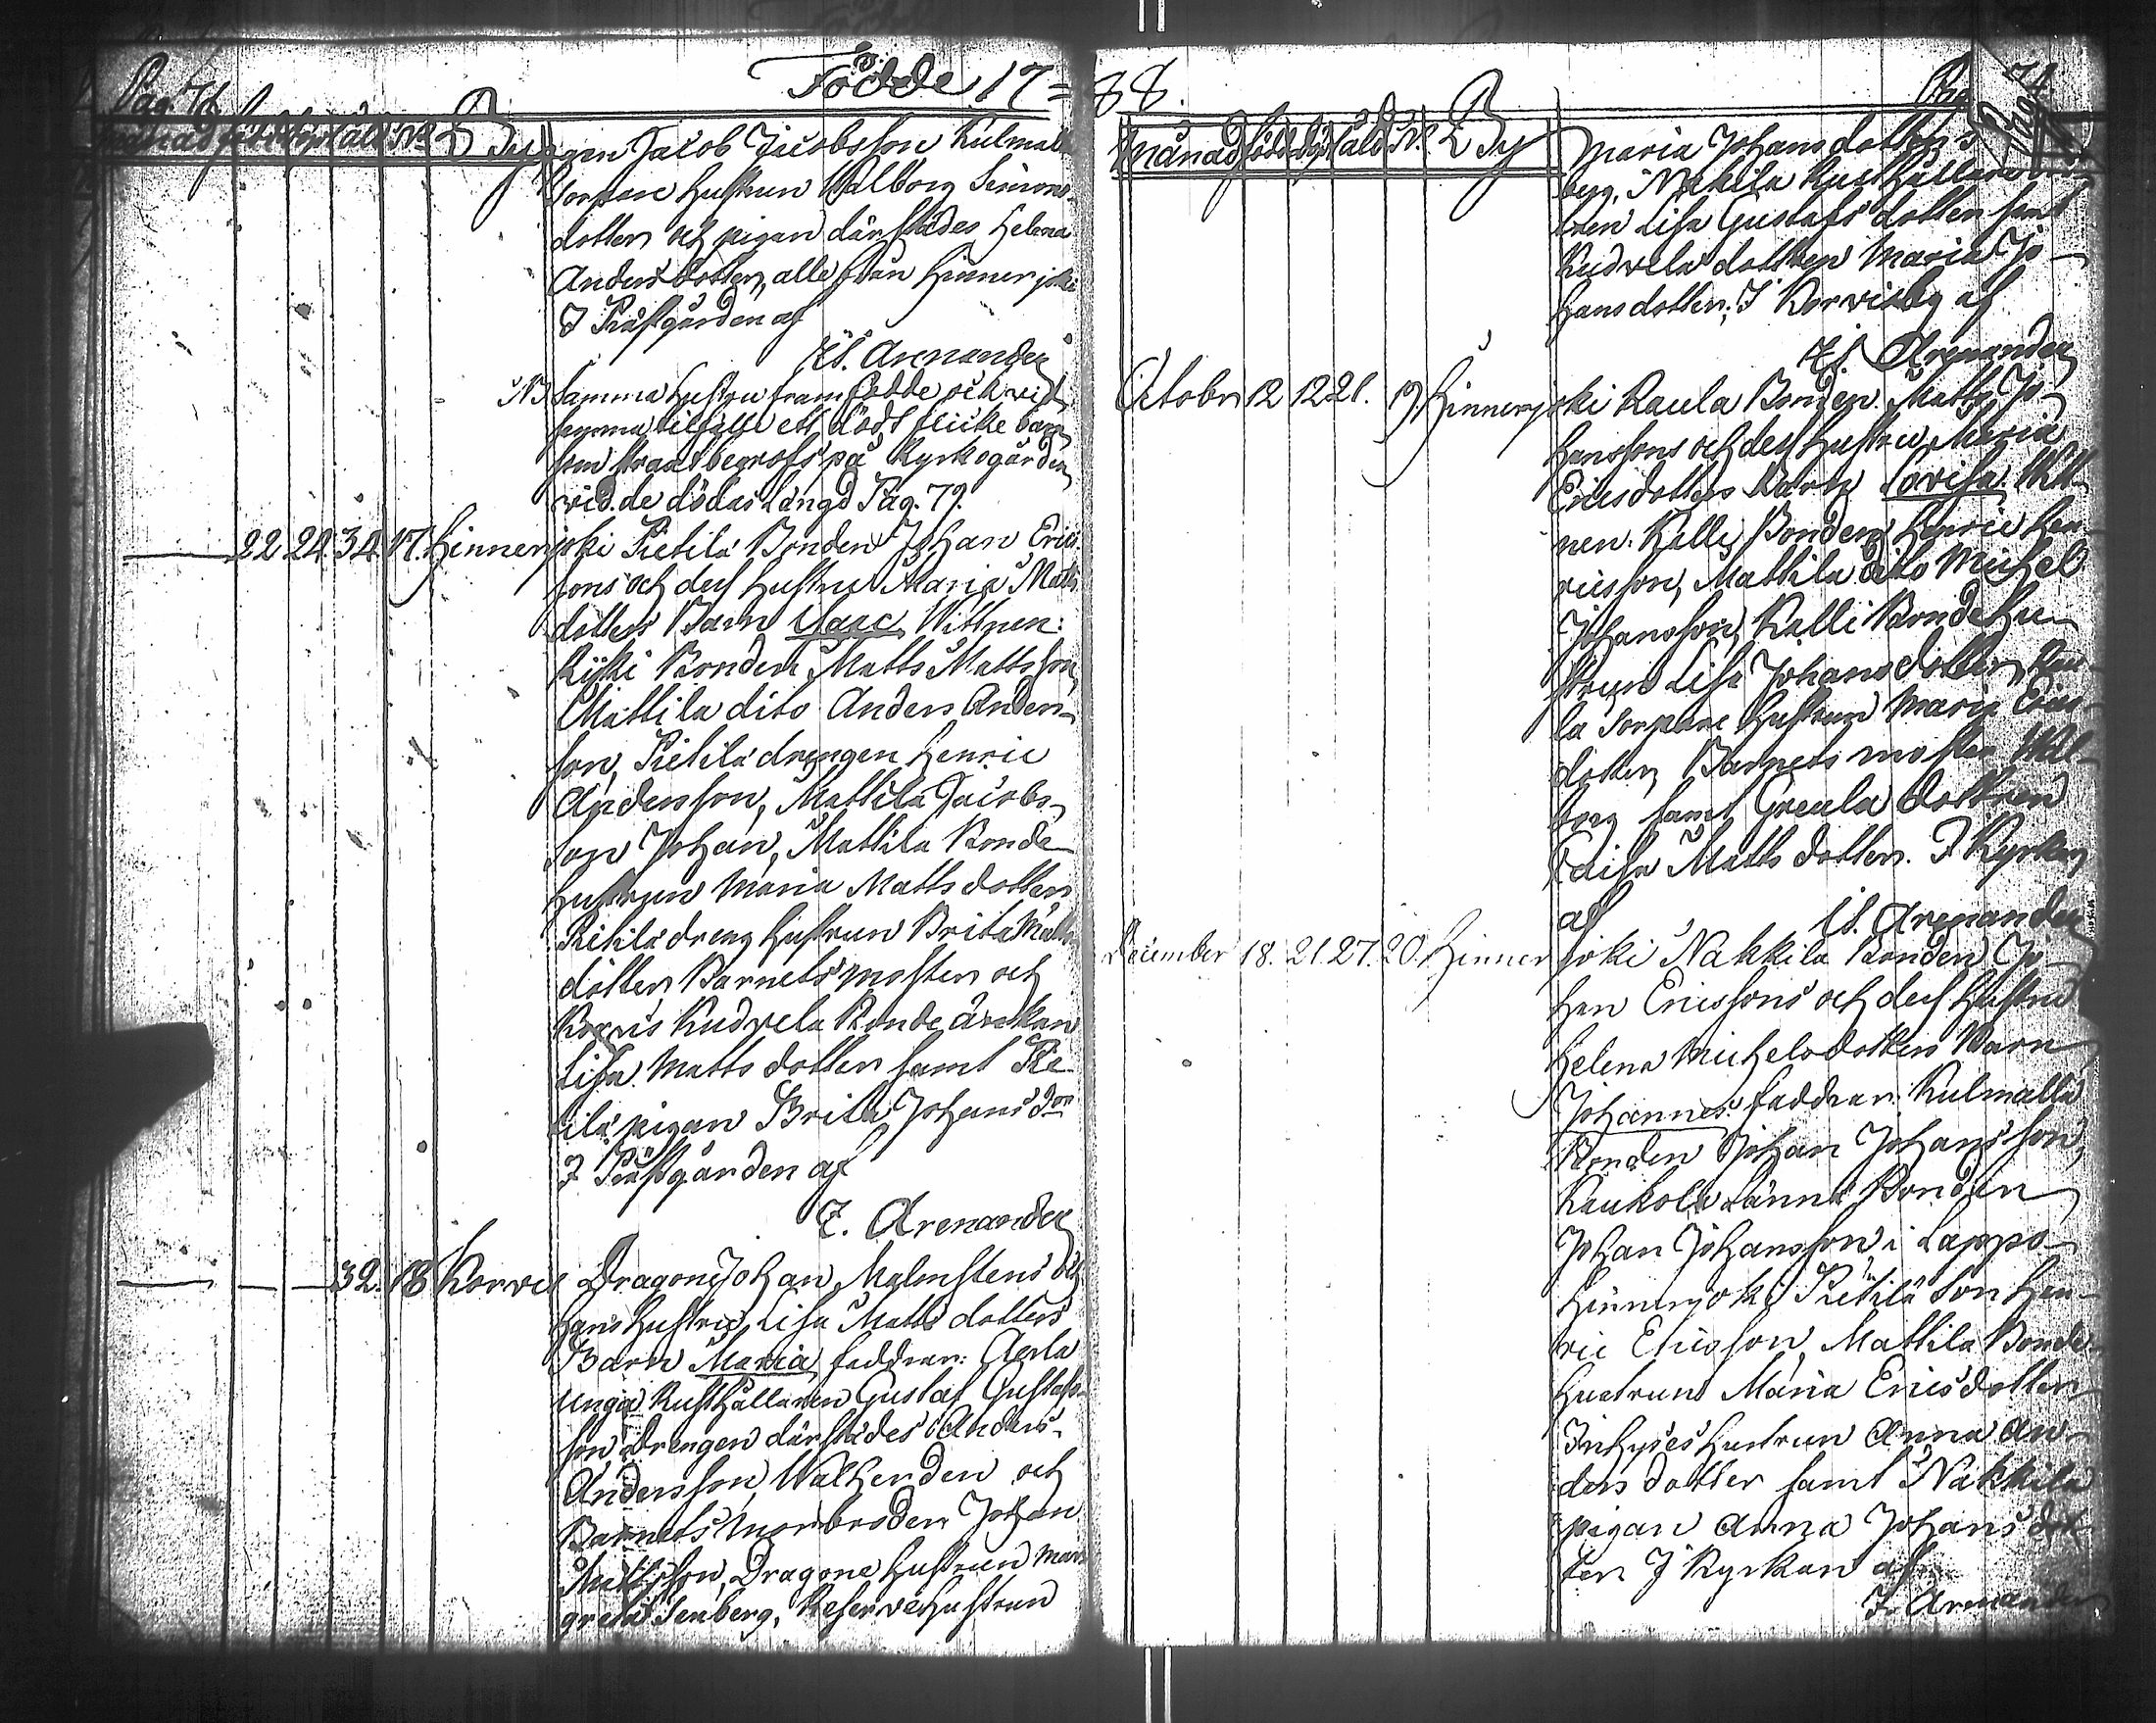 Födde 17=88.
Pag. 74
By
gen Jacob Jacobsson Kulmala
Sorpare hustrun Walborg Simons-
dotter och pigan därstädes Helena
Andersdotter, alle från Hinnerjoki
I Prästgården af
Arenander
NB Samma hustru framfödde ock vid
samma tilfälle ett dödt flicke barn
som straxt begrofs på Kyrkogården
vid. de dödas längd Pag. 79.
22 24. 34. 17. Hinnerjoki Pietilä Bonden Johan Erics-
sons och dess hustru Maria Matts
dotters Barn Isaac, Wittnen:
Bonden Matts Mattsson,
Mattila dito Anders Anders-
son, Pietilä drengen Henric
Andersson, Mattila Jacobs-
son Johan, Mattila Bonde
hustrun Maria Mattsdotter,
Pietilä dreng hustrun Brita Matts
dotter Barnets moster och
Korvis Kudvela Bonde änkan
Lisa Matts dotter samt Pie-
tilä pigan Brita Johans dor
I Prästgården af
Arenander
32. 18 Korvis Dragone Johan Malmstens och
hans hustrus Lisa Matts dotters
Barn Maria, faddrar:
Rusthållaren Gustaf Gustafs-
son drengen därstädes Anders
Andersson, och
Barnets morbroder Johan
Mattsson, Dragone hustrun Mar-
greta Stenberg, Reserve hustrun
Pag. 74
Månad född döpt ålder No. By
Maria Johansdotter
berg, Nakila Rusthållare
Lisa Gustafs dotter samt
Kudvela dottren Maria Jo-
hansdotter; I Korvis by af
Arenander
October 12 12 21. 19. Hinnerjoki Raula Bonden Matts Jo-
hanssons och dess hustru Maria
Ericsdotters Barn Lovisa. Witt-
nen. Kalli Bonden Henric Hen-
ricsson, Mattila dito Michel
Johansson, Kalli Bonde hu-
strun Lisa Johansdotter, Rau-
la Sorpare hustrun Maria Erics-
dotter, Barnets moster Wal-
borg samt Greula dottren
Caisa Matts dotter. I Kyrkan
af Arenander
December 18. 21. 27. 20. Hinnerjoki Nakkila Bonden Jo-
han Ericssons och dess hustru
Helena Michelsdotters Barn
Johannes, faddrar: Kulmalla
Bonden Johan Johansson,
Kaukola Länna Bonden
Johan Johansson i Lappo
Hinnerjoki Pietilä Son Hen-
ric Ericsson, Mattila Bonde
hustrun Maria Ericsdotter
Inhyses hustrun Anna An-
ders dotter samt Nakkila
pigan Anna Johans dot-
ter I Kyrkan af
Arenander